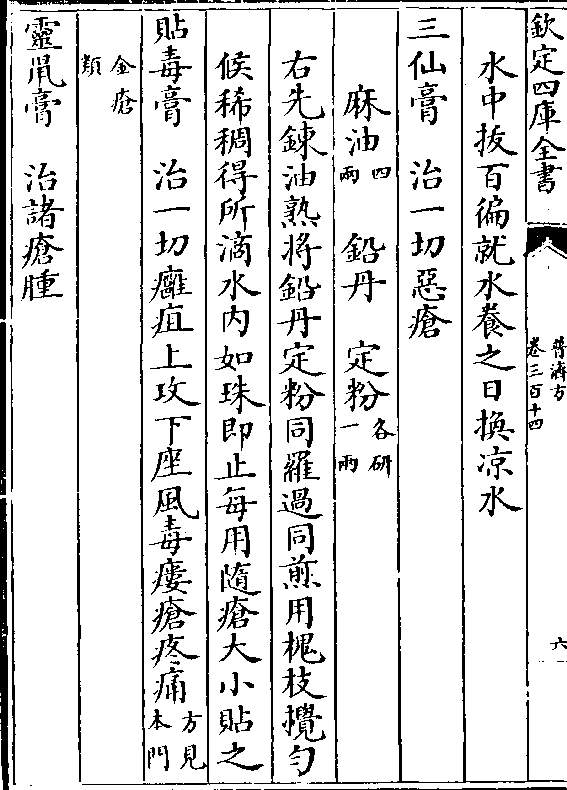 欽定四庫全書
普濟方
卷三百十四
六
水中拔百徧就水養之日換凉水
三仙膏　治一切惡瘡
麻油四兩　鉛丹　定粉各研一兩
右先鍊油熟將鉛丹定粉同羅過同煎用槐枝攪勻
候稀稠得所滴水内如珠即止每用隨瘡大小貼之
貼毒膏　治一切癰疽上攻下疰風毒瘻瘡疼痛方見本門
金瘡類
靈鼠膏　治諸瘡腫